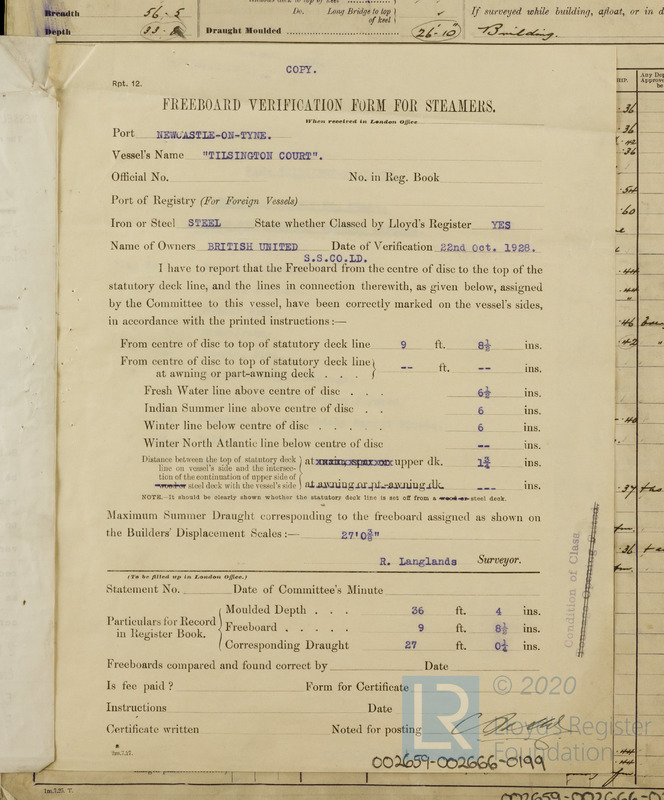 Breadth 56-5
Do. Long Bridge to top of keel
If surveyed while building, afloat, or in d
Depth
Draught Moulded 26-10
Building.
COPY.
Rpt. 12.
FREEBOARD VERIFICATION FORM FOR STEAMERS.
When received in London Office
Port NEWCASTLE-ON-TYNE.
Vessel's Name "TILSINGTON COURT".
Official No. No. in Reg. Book
Port of Registry (For Foreign Vessels)
Iron or Steel STEEL State whether Classed by Lloyd's Register YES
Name of Owners BRITISH UNITED Date of Verification 22nd Oct. 1928.
S.S.CO.LD.
I have to report that the Freeboard from the centre of disc to the top of the
statutory deck line, and the lines in connection therewith, as given below, assigned
by the Committee to this vessel, have been correctly marked on the vessel's sides,
in accordance with the printed instructions:—
From centre of disc to top of statutory deck line 9 ft. 8½ ins.
From centre of disc to top of statutory deck line
at awning or part-awning deck . . . -- ft. -- ins.
Fresh Water line above centre of disc . . . 6½ ins.
Indian Summer line above centre of disc . . 6 ins.
Winter line below centre of disc . . . . . 6 ins.
Winter North Atlantic line below centre of disc -- ins.
Distance between the top of statutory deck
line on vessel's side and the intersec-
tion of the continuation of upper side of
wood or steel deck with the vessel's side
at upper dk. 1¾ ins.
at awning or pt.-awning dk. --- ins.
NOTE.—It should be clearly shown whether the statutory deck line is set off from a wood or steel deck.
Maximum Summer Draught corresponding to the freeboard assigned as shown on
the Builders' Displacement Scales:— 27'0⅜"
R. Langlands Surveyor.
(To be filled up in London Office.)
Statement No. Date of Committee's Minute
Particulars for Record
in Register Book.
Moulded Depth . . . 36 ft. 4 ins.
Freeboard . . . . . 9 ft. 8½ ins.
Corresponding Draught 27 ft. 0¼ ins.
Freeboards compared and found correct by Date
Is fee paid? Form for Certificate
Instructions Date
Certificate written Noted for posting
2m,7,27.
Condition of Class
LR © 2020
Lloyd's Register
Foundation
002659-002666-0199
1m.7.25. T.
002659-002666-0